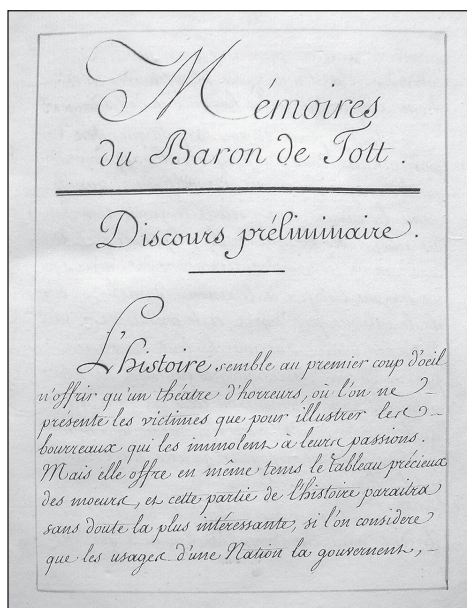 Mémoires
du Baron de Tott.
Discours préliminaire.
L'histoire semble au premier coup d'oeil
n'offrir qu'un théatre d'horreurs, où l'on ne
présente les victimes que pour illustrer les
bourreaux qui les immolent à leurs passions.
Mais elle offre en même tems le tableau précieux
des moeurs, et cette partie de l'histoire paraitra
sans doute la plus intéressante, si l'on considere
que les usages d'une Nation la gouvernent,